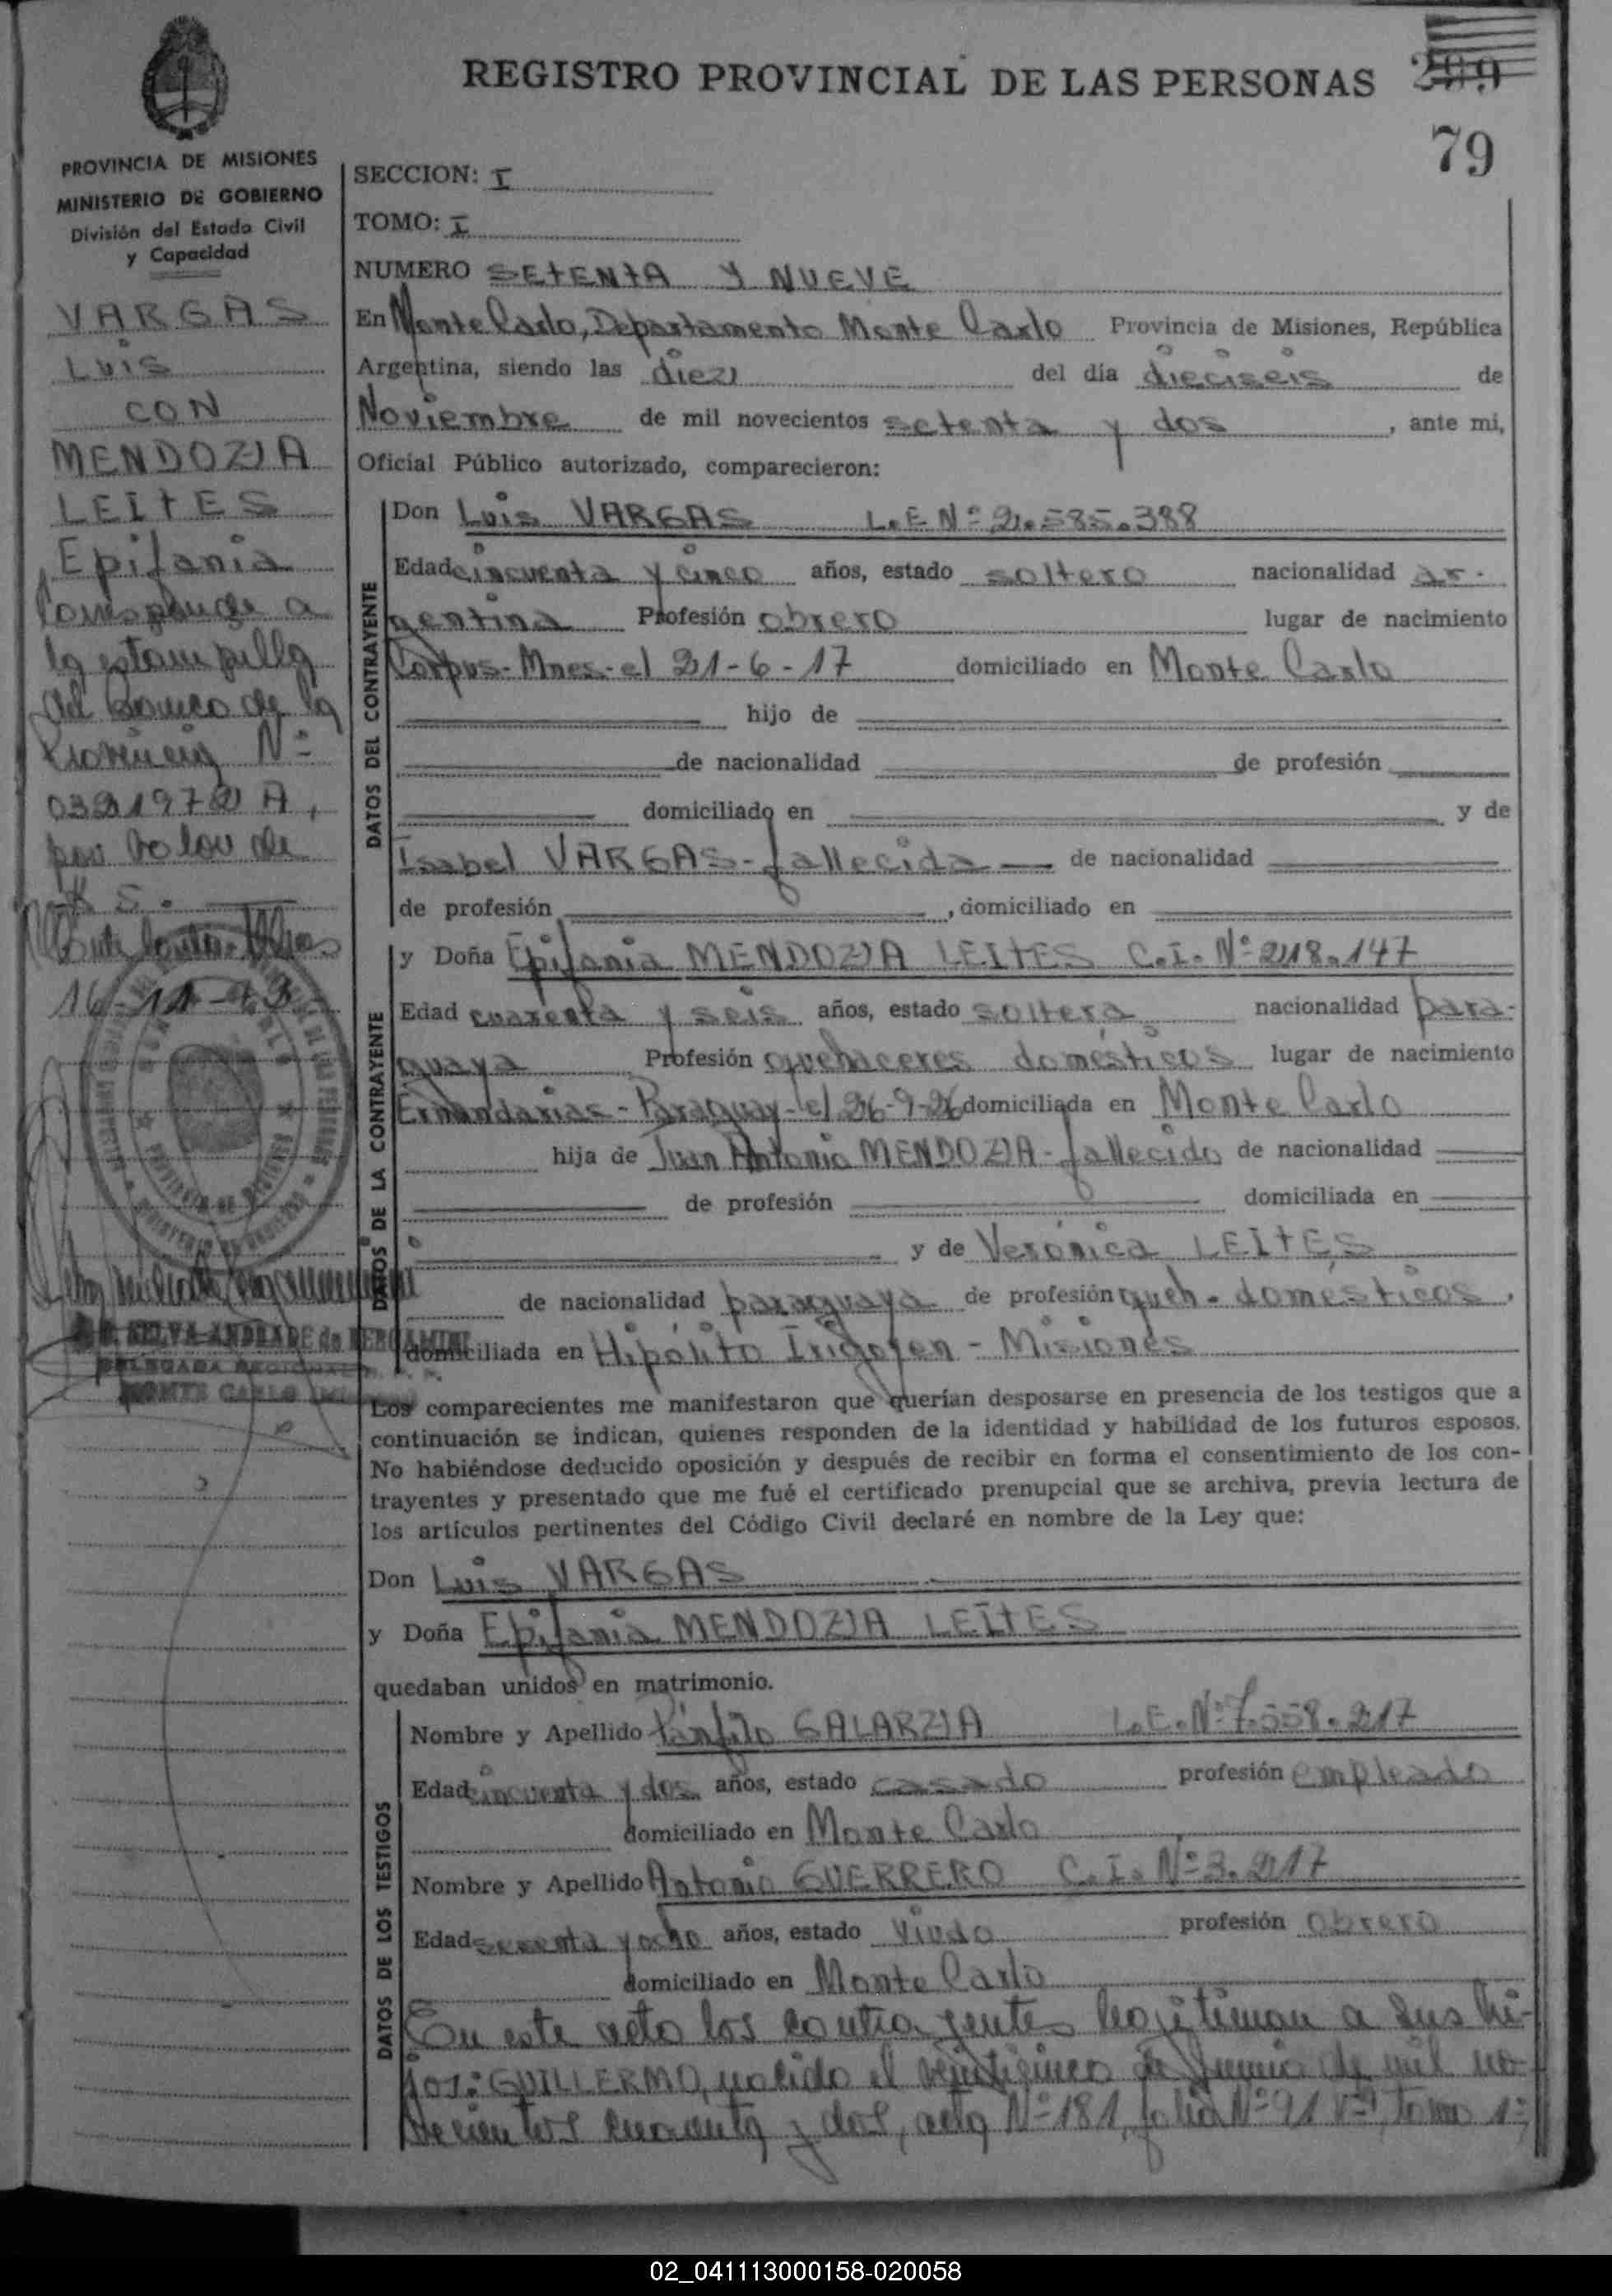 REGISTRO PROVINCIAL DE LAS PERSONAS
79
PROVINCIA DE MISIONES
MINISTERIO DE GOBIERNO
División del Estado Civil
y Capacidad
VARGAS
Luis
CON
MENDOZA
LEITES
Epifania
Corresponde a
la estampilla
del Banco de la
Provincia Nº
por valor de
SECCION: I
TOMO: I
NUMERO SETENTA Y NUEVE
En Monte Carlo, Departamento Monte Carlo Provincia de Misiones, República
Argentina, siendo las diez del día dieciseis de
Noviembre de mil novecientos setenta y dos, ante mi,
Oficial Público autorizado, comparecieron:
DATOS DEL CONTRAYENTE
Don Luis VARGAS L.E Nº 2.585.388
Edad cincuenta y cinco años, estado soltero nacionalidad ar-
gentina Profesión obrero lugar de nacimiento
Corpus- Mnes- el 21-6-17 domiciliado en Monte Carlo
hijo de
de nacionalidad de profesión
domiciliado en y de
Isabel VARGAS- fallecida de nacionalidad
de profesión , domiciliado en
DATOS DE LA CONTRAYENTE
y Doña Epifania MENDOZA LEITES C.I. Nº 218.147
Edad cuarenta y seis años, estado soltera nacionalidad para-
guaya Profesión quehaceres domésticos lugar de nacimiento
Ernandarias- Paraguay- el 26-9-26 domiciliada en Monte Carlo
hija de Juan Antonio MENDOZA- fallecido de nacionalidad
de profesión domiciliada en
y de Verónica LEITES
de nacionalidad paraguaya de profesión queh. domésticos,
domiciliada en Hipólito Irigoyen - Misiones
SELVA ANDRADE de BERGAMINI
DELEGADA
MONTE CARLO
Los comparecientes me manifestaron que querían desposarse en presencia de los testigos que a
continuación se indican, quienes responden de la identidad y habilidad de los futuros esposos.
No habiéndose deducido oposición y después de recibir en forma el consentimiento de los con-
trayentes y presentado que me fué el certificado prenupcial que se archiva, previa lectura de
los artículos pertinentes del Código Civil declaré en nombre de la Ley que:
Don Luis VARGAS
y Doña Epifania MENDOZA LEITES
quedaban unidos en matrimonio.
DATOS DE LOS TESTIGOS
Nombre y Apellido Pánfilo GALARZA L.E. Nº 7.558.217
Edad cincuenta y dos años, estado casado profesión empleado
domiciliado en Monte Carlo
Nombre y Apellido Antonio GUERRERO C.I. Nº 3.217
Edad sesenta y ocho años, estado viudo profesión obrero
domiciliado en Monte Carlo
En este acto los contrayentes legitiman a sus hi-
jos: GUILLERMO, nacido el veinticinco de Junio de mil no-
vecientos cuarenta y dos, acta Nº 181, folio Nº 91 Vº, tomo 1º,
02_041113000158-020058